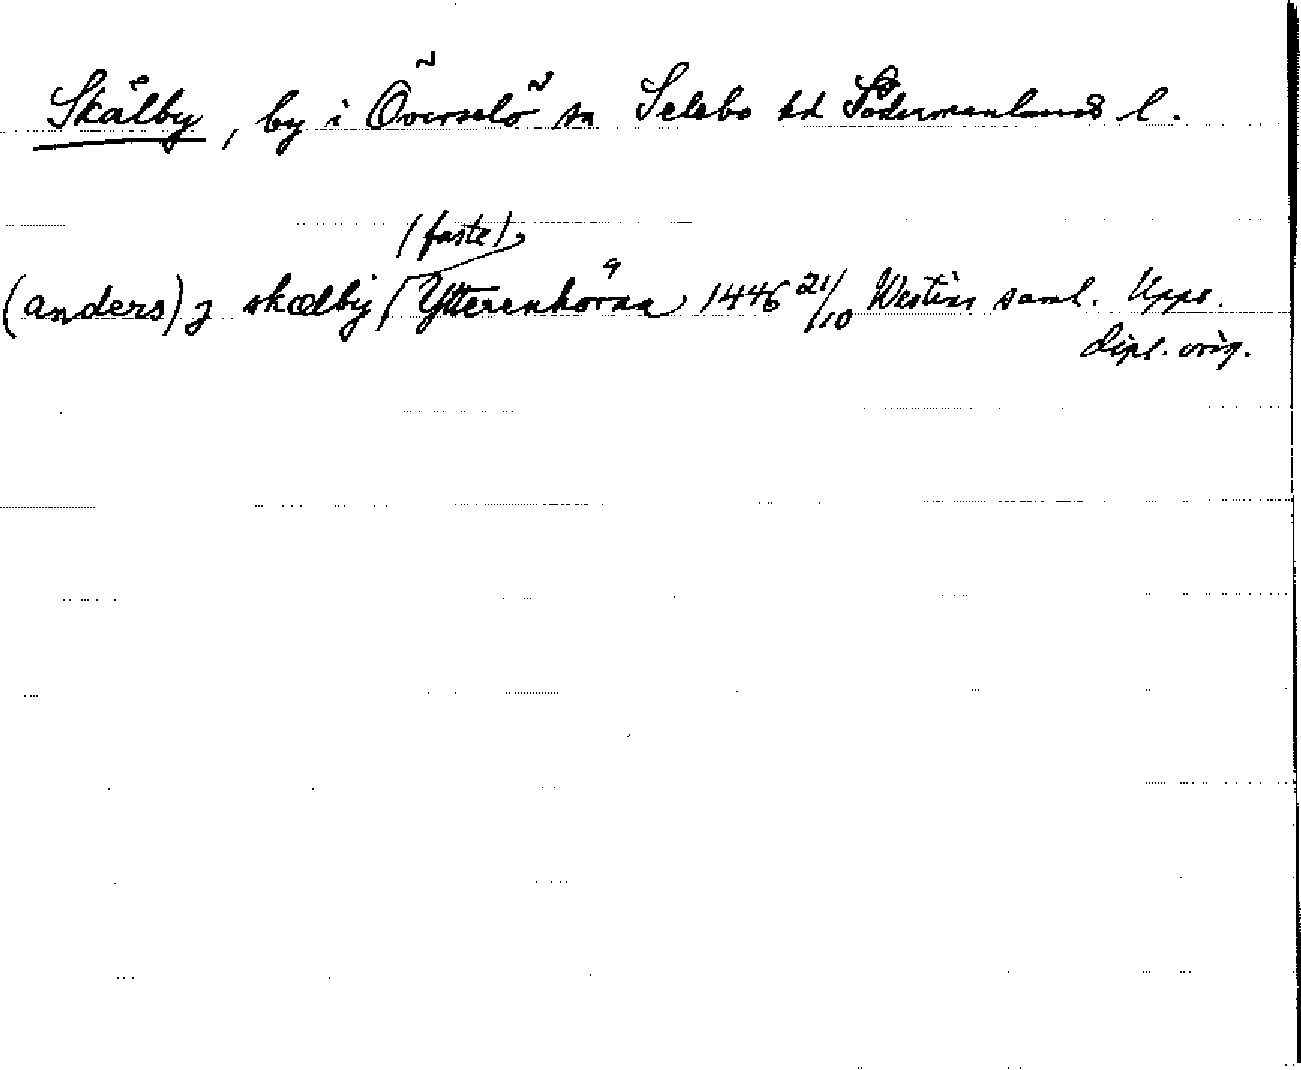 Skålby, by i Överselö sn Selebo hd Södermanlands l.
(faste),
(anders) j skælby Ytterenhörna 1446 21/10 Westins saml. Upps.
dipl. orig.